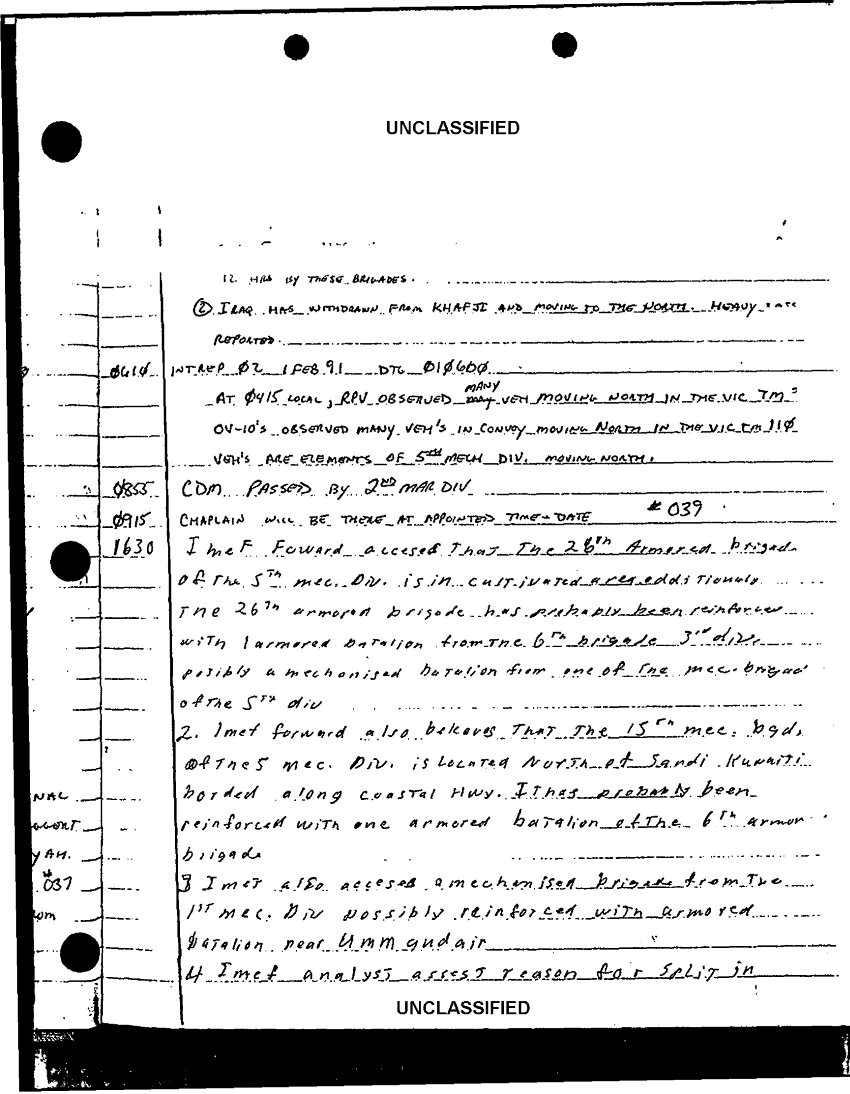 UNCLASSIFIED
12 HRS BY THESE BRIGADES.
② IRAQ HAS WITHDRAWN FROM KHAFJI AND MOVING TO THE NORTH. HEAVY
REPORTED.
0610 INTREP 02 1 FEB 91 DTG 010600
MANY
AT 0415 LOCAL, RPV OBSERVED many VEH MOVING NORTH IN THE VIC TM
OV-10'S OBSERVED MANY VEH'S IN CONVOY MOVING NORTH IN THE VIC TM 110
VEH'S ARE ELEMENTS OF 5TH MECH DIV. MOVING NORTH.
0855 CDM PASSED BY 2ND MAR DIV
0915 CHAPLAIN WILL BE THERE AT APPOINTED TIME + DATE # 039
1630 I meF Foward accesed That The 26th Armored brigad
of The 5Th mec. Div. is in cultivated area additionaly
The 26Th armored brigade has probably been reinforced
with 1 armored batalion from The 6Th brigade 3rd div.
posibly a mechanised batalion from one of The mec. brigad
of The 5Th div
2. Imef forward also beleaves That The 15Th mec. bgd.
of The 5 mec. Div. is Located North of Saudi Kuwaiti
borded along coastal Hwy. It has probably been
NAL
reinforced with one armored batalion of The 6Th armor
brigade
YAH.
# 037
3 Imef also acceses a mechanised brigade from The
1ST mec. Div possibly reinforced with armored
batalion near Umm gudair
4 Imef analyst assest reason for split in
UNCLASSIFIED